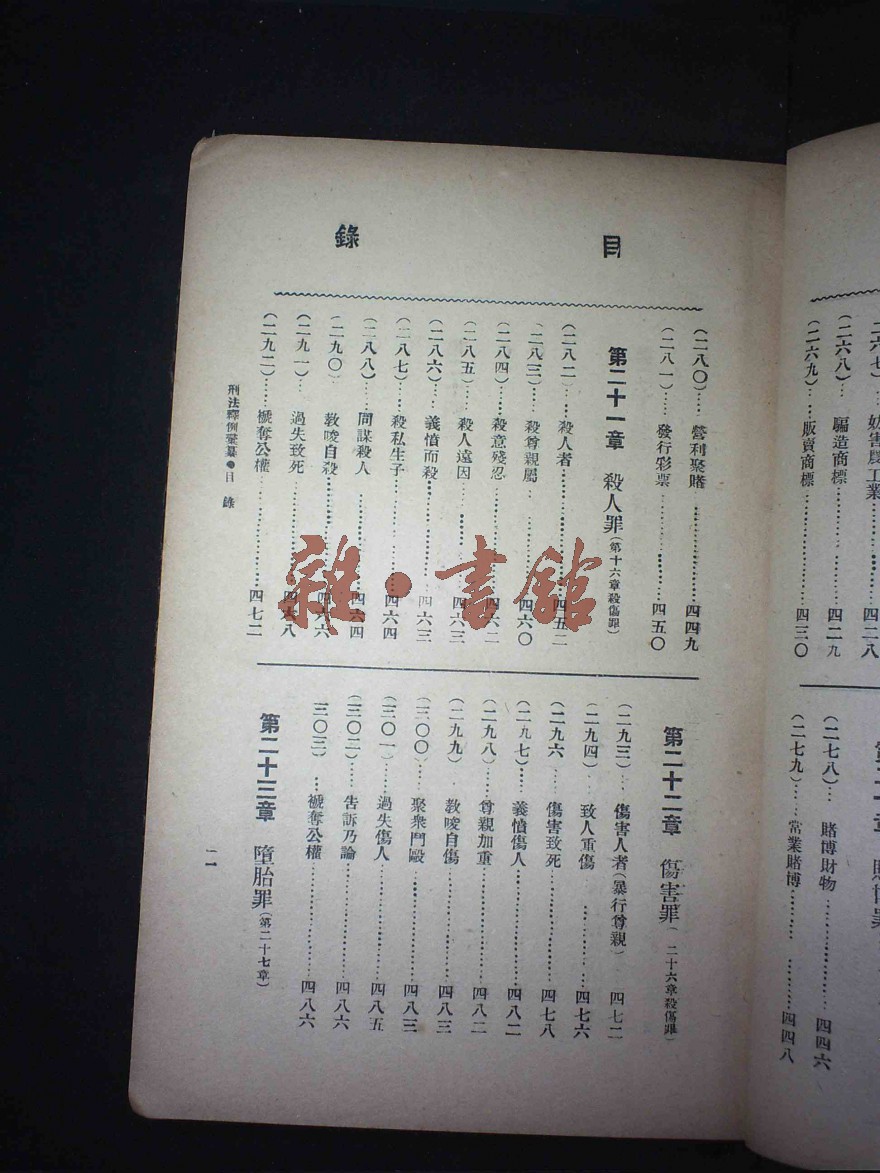 妨害農工業……四二八
(二六八)…偏造商標……四二九
(二六九)…販賣商標……四三〇
(二七八)…賭博財物……四四六
(二七九)…常業賭博……四四八
目錄
(二八〇)…營利聚賭……四四九
(二八一)…發行彩票……四五〇
第二十一章 殺人罪(第十六章殺傷罪)
(二八二…殺人者……四五二
(二八三)…殺尊親屬……四六〇
(二八四)…殺意殘忍……四六二
(二八五)…殺人遠因……四六三
(二八六)…義憤而殺……四六三
(二八七)…殺私生子……四六四
(二八八)…同謀殺人……四六四
(二九〇)…教唆自殺……四六六
(二九一)…過失致死……四六八
(二九二)…褫奪公權……四七二
第二十二章 傷害罪(二十六章殺傷罪)
(二九三)…傷害人者(暴行尊親)四七二
(二九四)…致人重傷……四七六
(二九六…傷害致死……四七八
(二九七)…義憤傷人……四八二
(二九八)…尊親加重……四八二
(二九九)…教唆自傷……四八三
(三〇〇)…聚衆鬥毆……四八三
(三〇一)…過失傷人……四八五
(三〇二)…告訴乃論……四八六
三〇三)…褫奪公權……四八六
第二十三章 墮胎罪(第二十七章)
刑法釋例彙纂●目 錄
一一
雜·書館